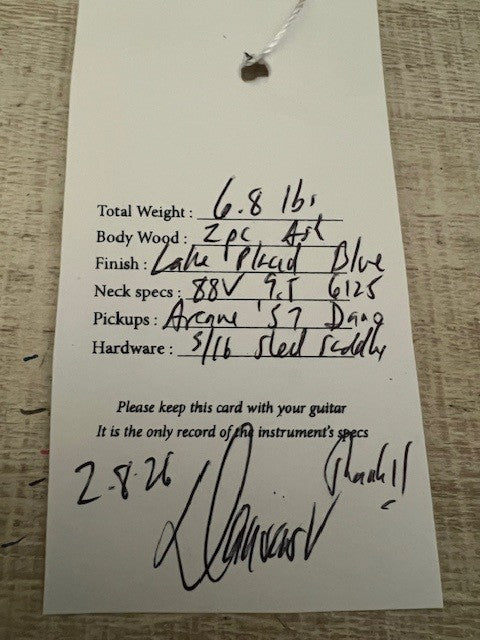 Total Weight : 6.8 lbs
Body Wood : 2pc Ash
Finish : Lake Placid Blue
Neck specs : 88V 9.5 6125
Pickups : Arcane '57 Dano
Hardware : 5/16 steel saddles
Please keep this card with your guitar
It is the only record of the instrument's specs
2.8.26
Thank!!